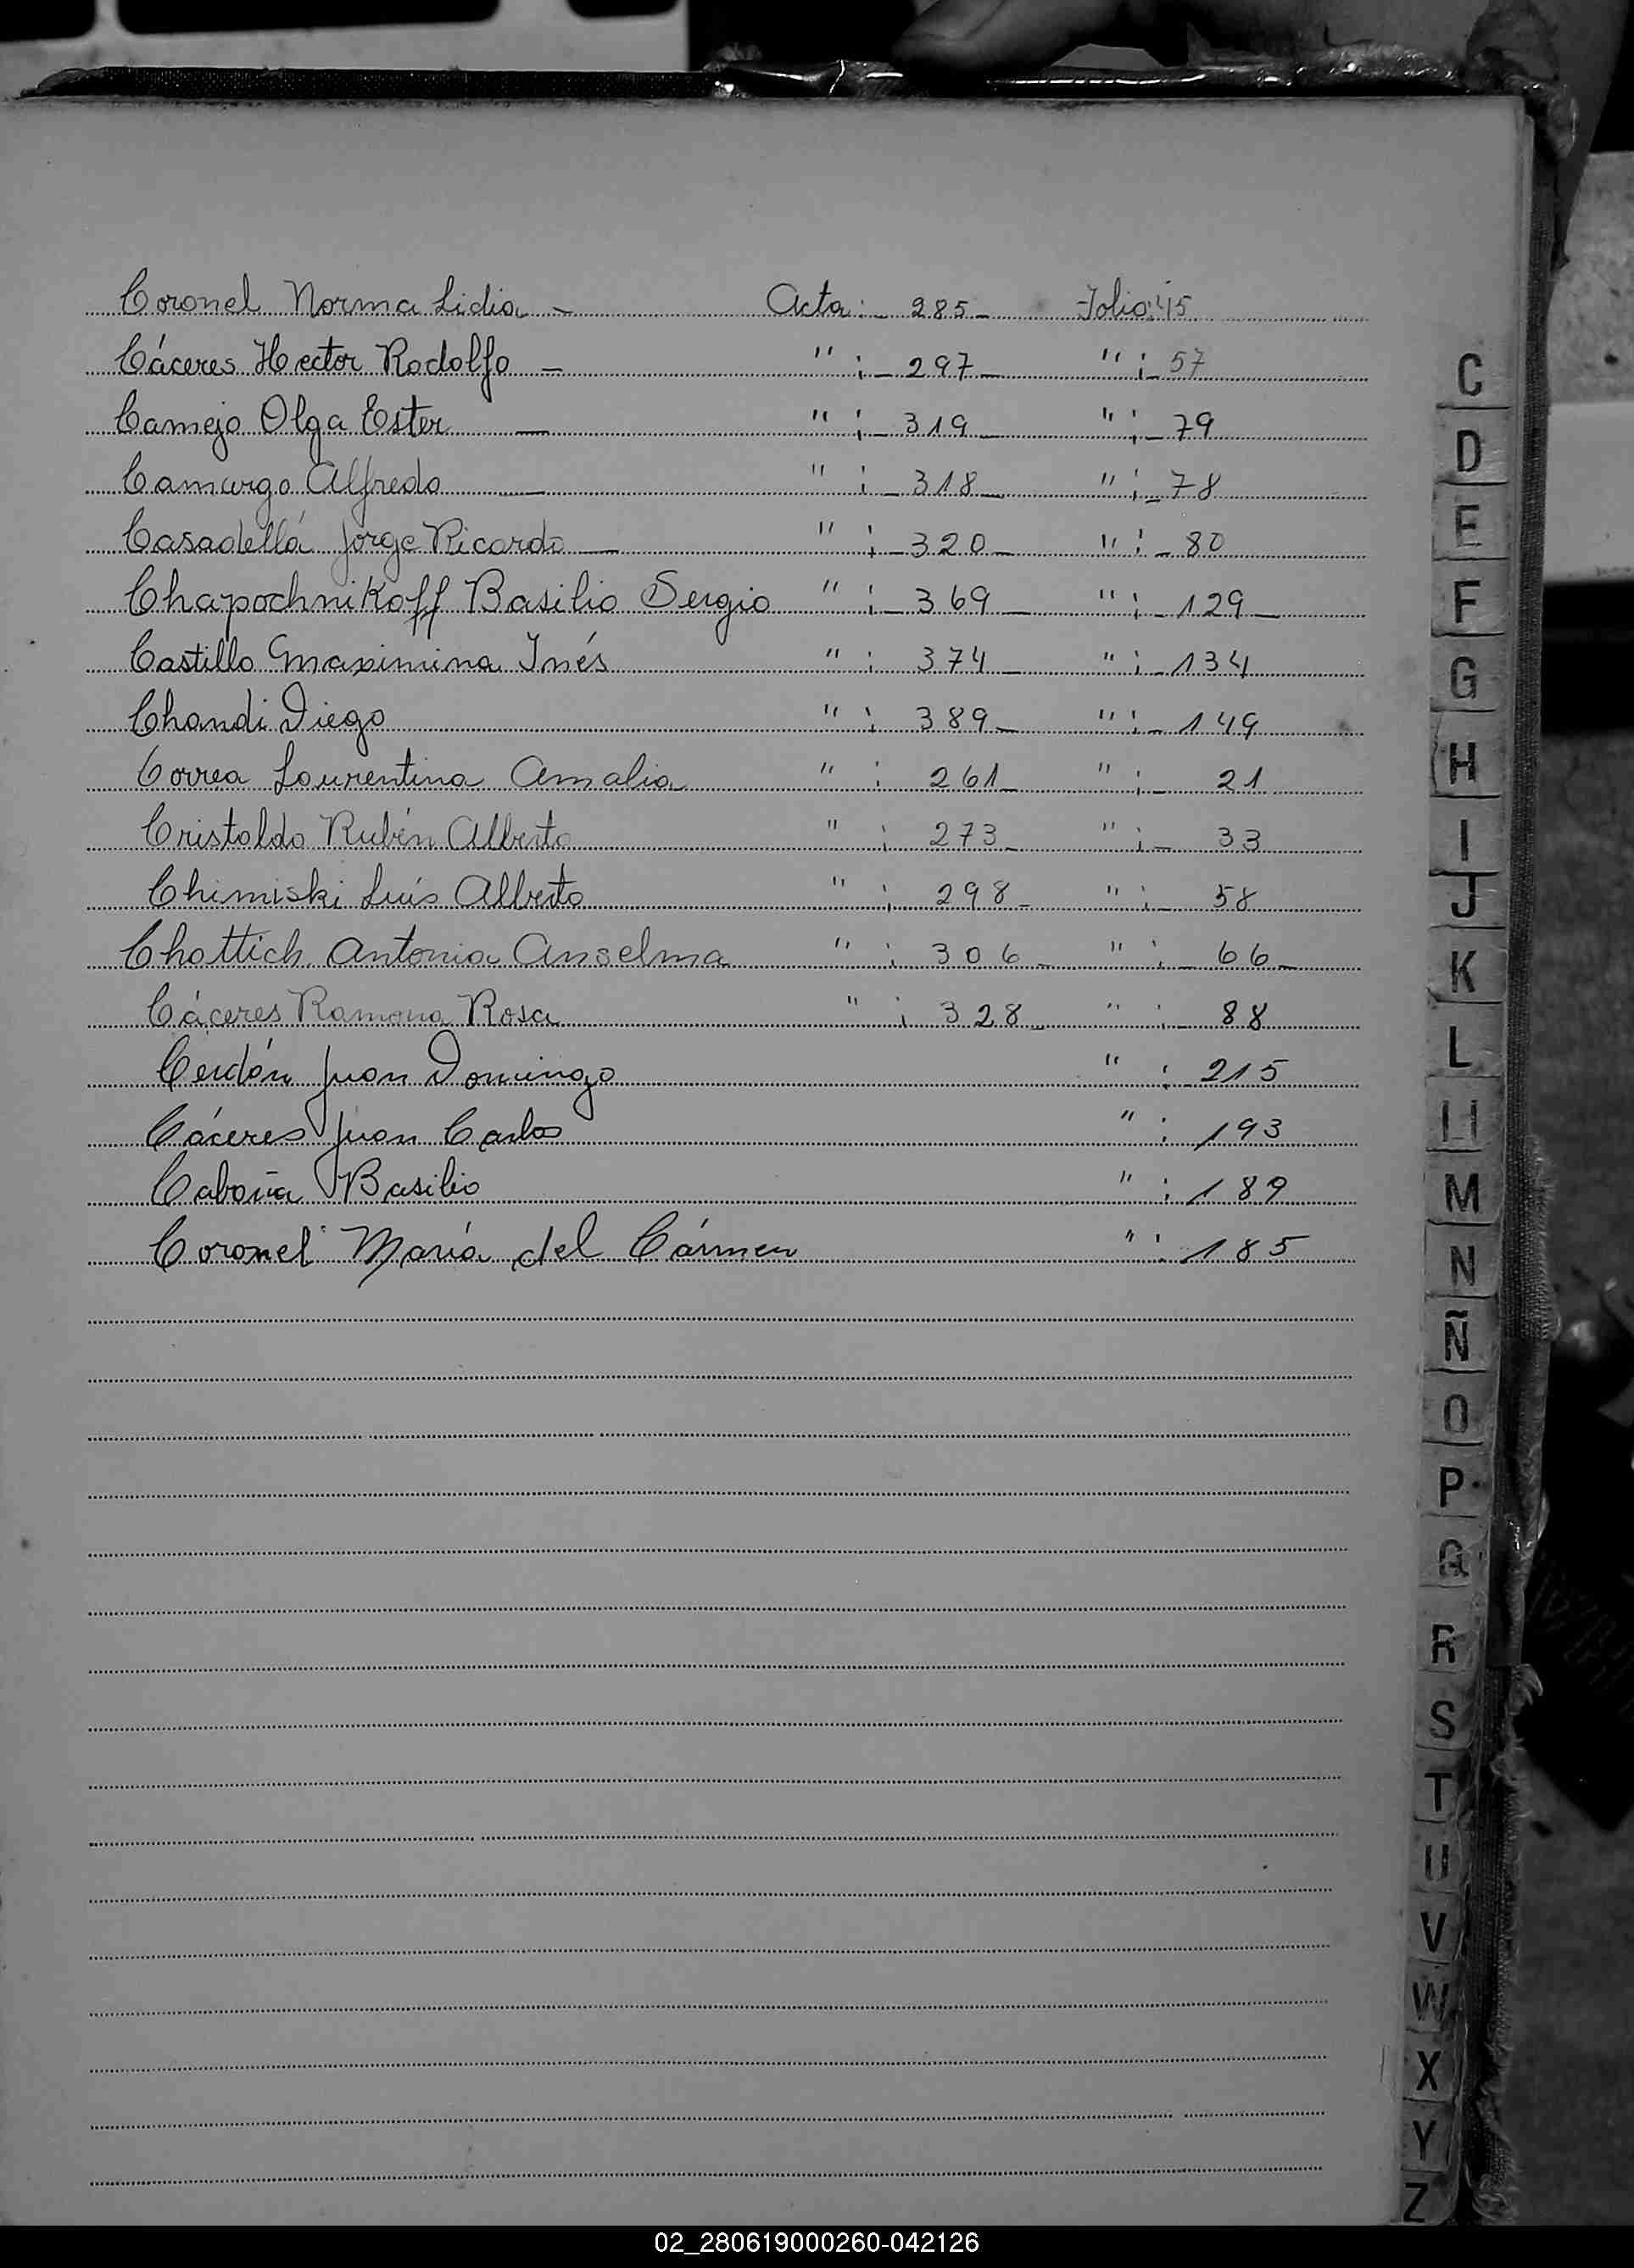 Coronel Norma Lidia - Acta: - 285 - Folio: 45
Cáceres Hector Rodolfo - " : - 297 - " : - 57
Camejo Olga Ester - " : - 319 - " : - 79
Camargo Alfredo - " : - 318 - " : - 78
Casadellá Jorge Ricardo - " : - 320 - " : - 80
Chapochnikoff Basilio Sergio " : - 369 - " : - 129 -
Castillo Maximina Inés " : 374 - " : - 134
Chandi Diego " : 389 - " : - 149
Correa Laurentina Amalia " : 261 - " : - 21
Cristaldo Rubén Alberto " : 273 - " : - 33
Chimiski Luís Alberto " : 298 - " : - 58
Chattich Antonia Anselma " : 306 - " : - 66 -
Cáceres Ramona Rosa " : 328 - " : - 88
Cerdán Juan Domingo " : 215
Cáceres Juan Carlos " : 193
Cabaña Basilio " : 189
Coronel María del Cármen " : 185
C
D
E
F
G
H
I
J
K
L
Ll
M
N
Ñ
O
P
Q
R
S
T
U
V
W
X
Y
Z
02_280619000260-042126